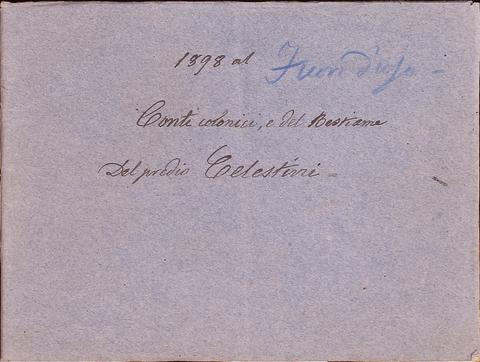 1898 al Fuori d'uso -
Conti colonici, e del Bestiame
Del predio Celestini =